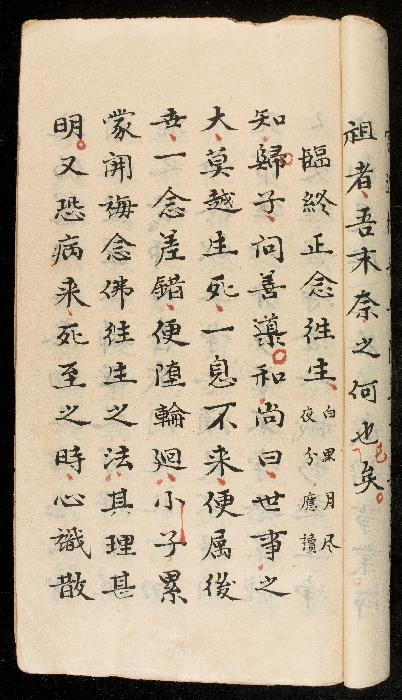 祖者吾末奈之何也已矣
臨終正念往生
白黑月尽
夜分應讀
知歸子問善導和尚曰世事之
大莫越生死一息不来便属後
世一念差錯便堕輪廻小子累
蒙開誨念佛往生之法其理甚
明又恐病来死至之時心識散